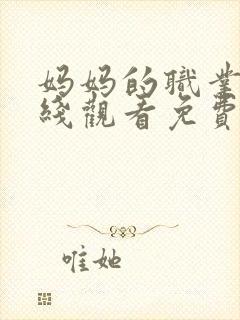 妈妈的職業
綫觀看免費
唯她